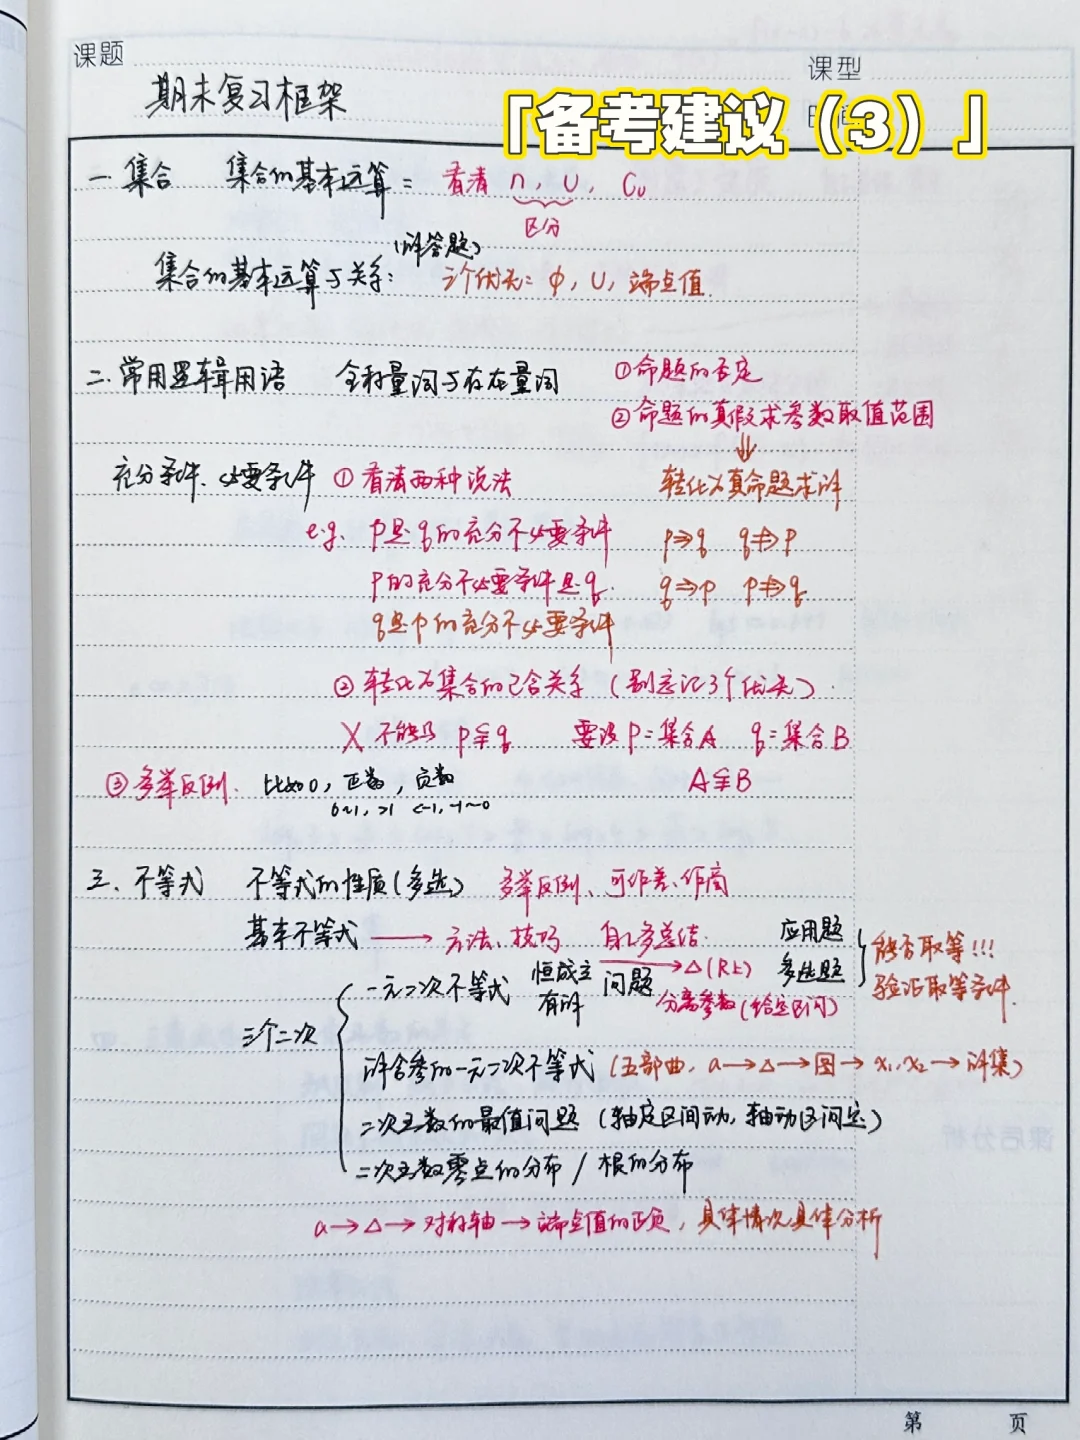 课题
课型
期末复习框架
「备考建议（3）」
一. 集合 集合的基本运算: 看清 ∩, ∪, Cu
区分
(解答题)
集合的基本运算与关系: 三个优先: ∅, U, 端点值
二. 常用逻辑用语 全称量词与存在量词 ①命题的否定
②命题的真假求参数取值范围
⇓
充分条件、必要条件 ①看清两种说法 转化为真命题求解
e.g. p是q的充分不必要条件 p⇒q q⇏p
p的充分不必要条件是q. q⇒p p⇏q
q是p的充分不必要条件
②转化为集合的包含关系 (别忘记3个优先)
X 不能设 p⫋q 要设 p=集合A q=集合B
③多举反例. 比如0, 正数, 负数 A⫋B
0~1, >1 <-1, -1~0
三. 不等式 不等式的性质(多选) 多举反例、可作差、作商
基本不等式 → 方法、技巧 自己多总结. 应用题
多选题 } 能否取等!!!
验证取等条件.
三个二次 { 一元二次不等式 恒成立 有解 问题 → △(R上)
分离参数(给定区间)
解含参的一元二次不等式 (五部曲, a→△→图→x₁,x₂→解集)
二次函数的最值问题 (轴定区间动, 轴动区间定)
二次函数零点的分布 / 根的分布
a→△→对称轴→端点值的正负, 具体情况具体分析
课后分析
第 页